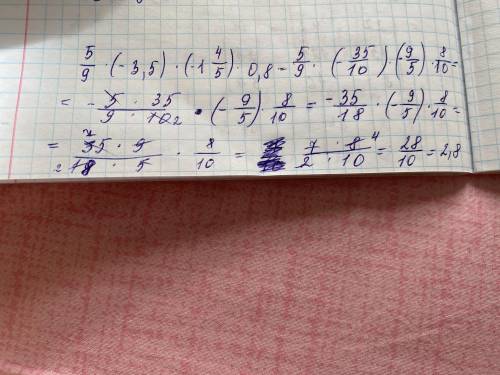 5/9 · (-3,5) · (-1 4/5) · 0,8 = 5/9 · (-35/10) · (-9/5) · 8/10 =
= - 5 · 35 / 9 · 10 2 · (-9/5) · 8/10 = -35/18 · (-9/5) · 8/10 =
= 7 35 · 9 / 2 18 · 5 · 8/10 = 7 · 8 4 / 2 · 10 = 28/10 = 2,8